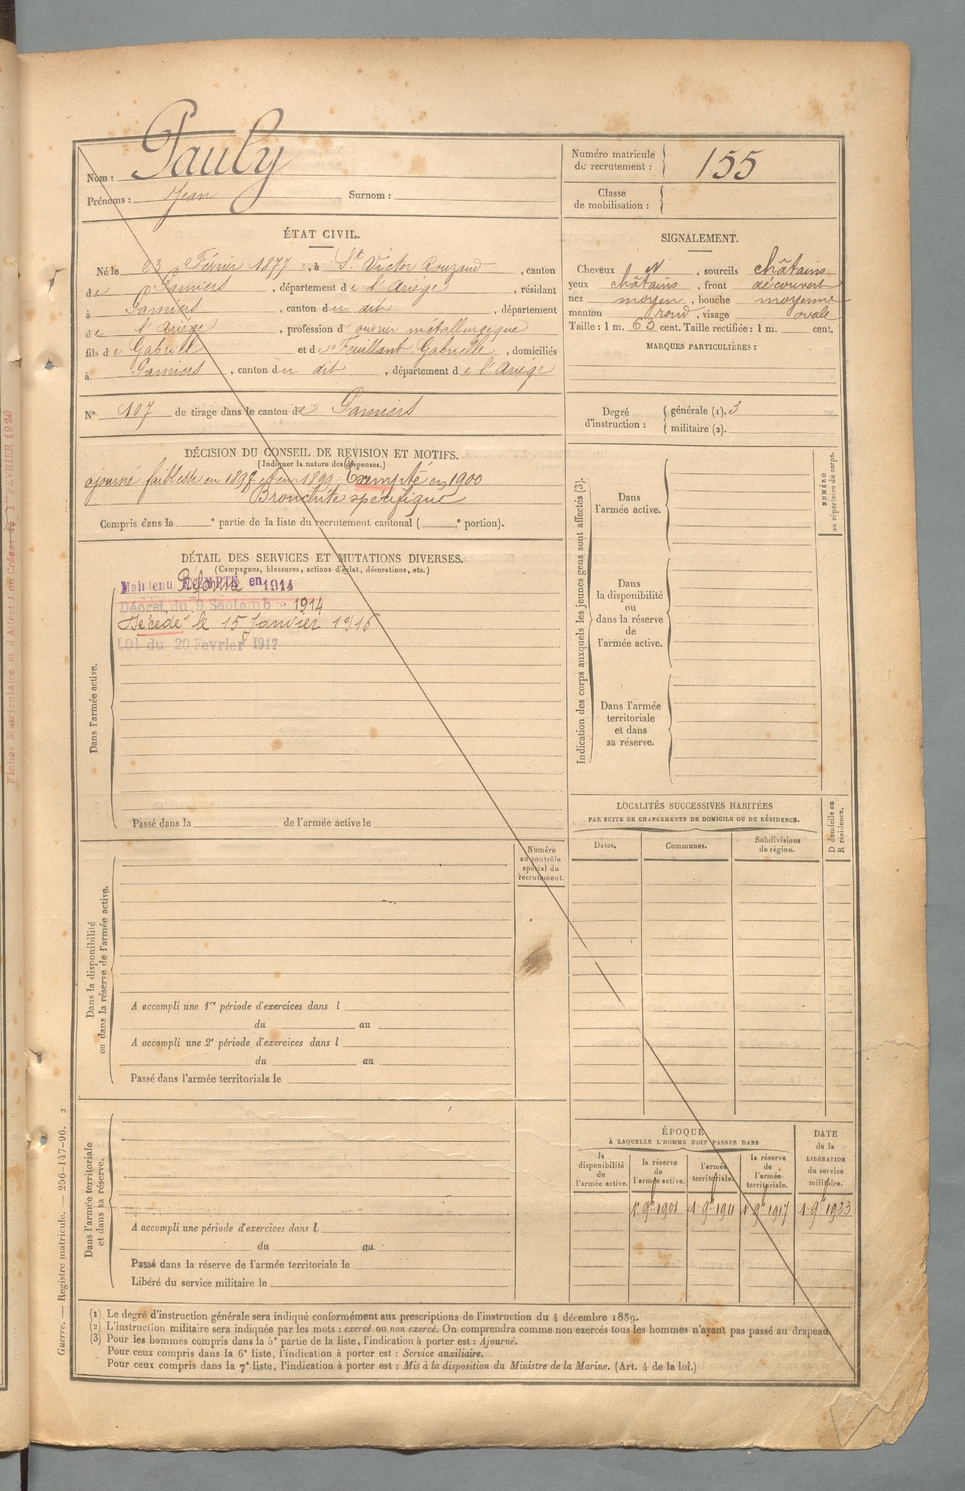 Nom : Pauly
Prénoms : Jean Surnom :
Numéro matricule
de recrutement : 155
Classe
de mobilisation :
ÉTAT CIVIL.
Né le 23 Février 1877, à St Victor Rouzaud, canton
de Pamiers, département de l'Ariège, résidant
à Pamiers, canton du dit, département
de l'Ariège, profession d'ouvrier métallurgique
fils de Gabriel et de Feuillant Gabrielle, domiciliés
à Pamiers, canton du dit, département de l'Ariège
N° 107 de tirage dans le canton de Pamiers
SIGNALEMENT.
Cheveux N, sourcils châtains
yeux châtains, front découvert
nez moyen, bouche moyenne
menton rond, visage ovale
Taille : 1 m. 63 cent. Taille rectifiée : 1 m. cent.
MARQUES PARTICULIÈRES :
Degré
d'instruction :
générale (1). 3
militaire (2).
DÉCISION DU CONSEIL DE REVISION ET MOTIFS.
(Indiquer la nature des dispenses.)
ajourné faiblesse en 1898 et en 1899, Exempté en 1900
Bronchite spécifique
Compris dans la e partie de la liste du recrutement cantonal ( e portion).
DÉTAIL DES SERVICES ET MUTATIONS DIVERSES.
(Campagnes, blessures, actions d'éclat, décorations, etc.)
Maintenu Réformé EXEMPTÉ en 1914
Décret du 9 Septembre 1914
Décédé le 15 Janvier 1916
LOI du 20 Fevrier 1917
Dans l'armée active.
Passé dans la de l'armée active le
Indication des corps auxquels les jeunes gens sont affectés (3).
Dans
l'armée active.
Dans
la disponibilité
ou
dans la réserve
de
l'armée active.
Dans l'armée
territoriale
et dans
sa réserve.
NUMÉRO
au répertoire du corps.
LOCALITÉS SUCCESSIVES HABITÉES
PAR SUITE DE CHANGEMENTS DE DOMICILE OU DE RÉSIDENCE.
Dates.
Communes.
Subdivisions
de région.
D domicile ou
R résidence.
Numéro
au contrôle
spécial du
recrutement.
Dans la disponibilité
ou dans la réserve de l'armée active.
A accompli une 1re période d'exercices dans l
du au
A accompli une 2e période d'exercices dans l
du au
Passé dans l'armée territoriale le
Dans l'armée territoriale
et dans sa réserve.
A accompli une période d'exercices dans l
du au
Passé dans la réserve de l'armée territoriale le
Libéré du service militaire le
ÉPOQUE
À LAQUELLE L'HOMME DOIT PASSER DANS
la
disponibilité
de
l'armée active.
la réserve
de
l'armée active.
l'armée
territoriale.
la réserve
de
l'armée
territoriale.
DATE
de la
LIBÉRATION
du service
militaire.
1 9bre 1901
1 9bre 1911
1 9bre 1917
1 9bre 1923
(1) Le degré d'instruction générale sera indiqué conformément aux prescriptions de l'instruction du 4 décembre 1889.
(2) L'instruction militaire sera indiquée par les mots : exercé ou non exercé. On comprendra comme non exercés tous les hommes n'ayant pas passé au drapeau.
(3) Pour les hommes compris dans la 5e partie de la liste, l'indication à porter est : Ajourné.
Pour ceux compris dans la 6e liste, l'indication à porter est : Service auxiliaire.
Pour ceux compris dans la 7e liste, l'indication à porter est : Mis à la disposition du Ministre de la Marine. (Art. 4 de la loi.)
Guerre. — Registre matricule. — 256-147-96. 2